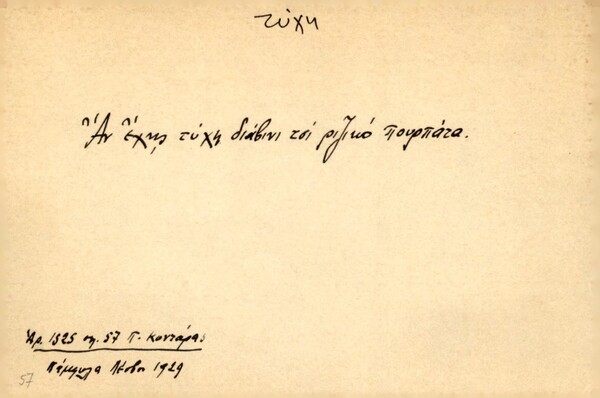 τύχη
Ἂν ἔχῃς τύχη διάβινι τσί ριζικό πουρπάτα.
Ἀρ. 1525 σ. 57 Π. Κοντάρας
Πάμφυλα Λέσβου 1929
57